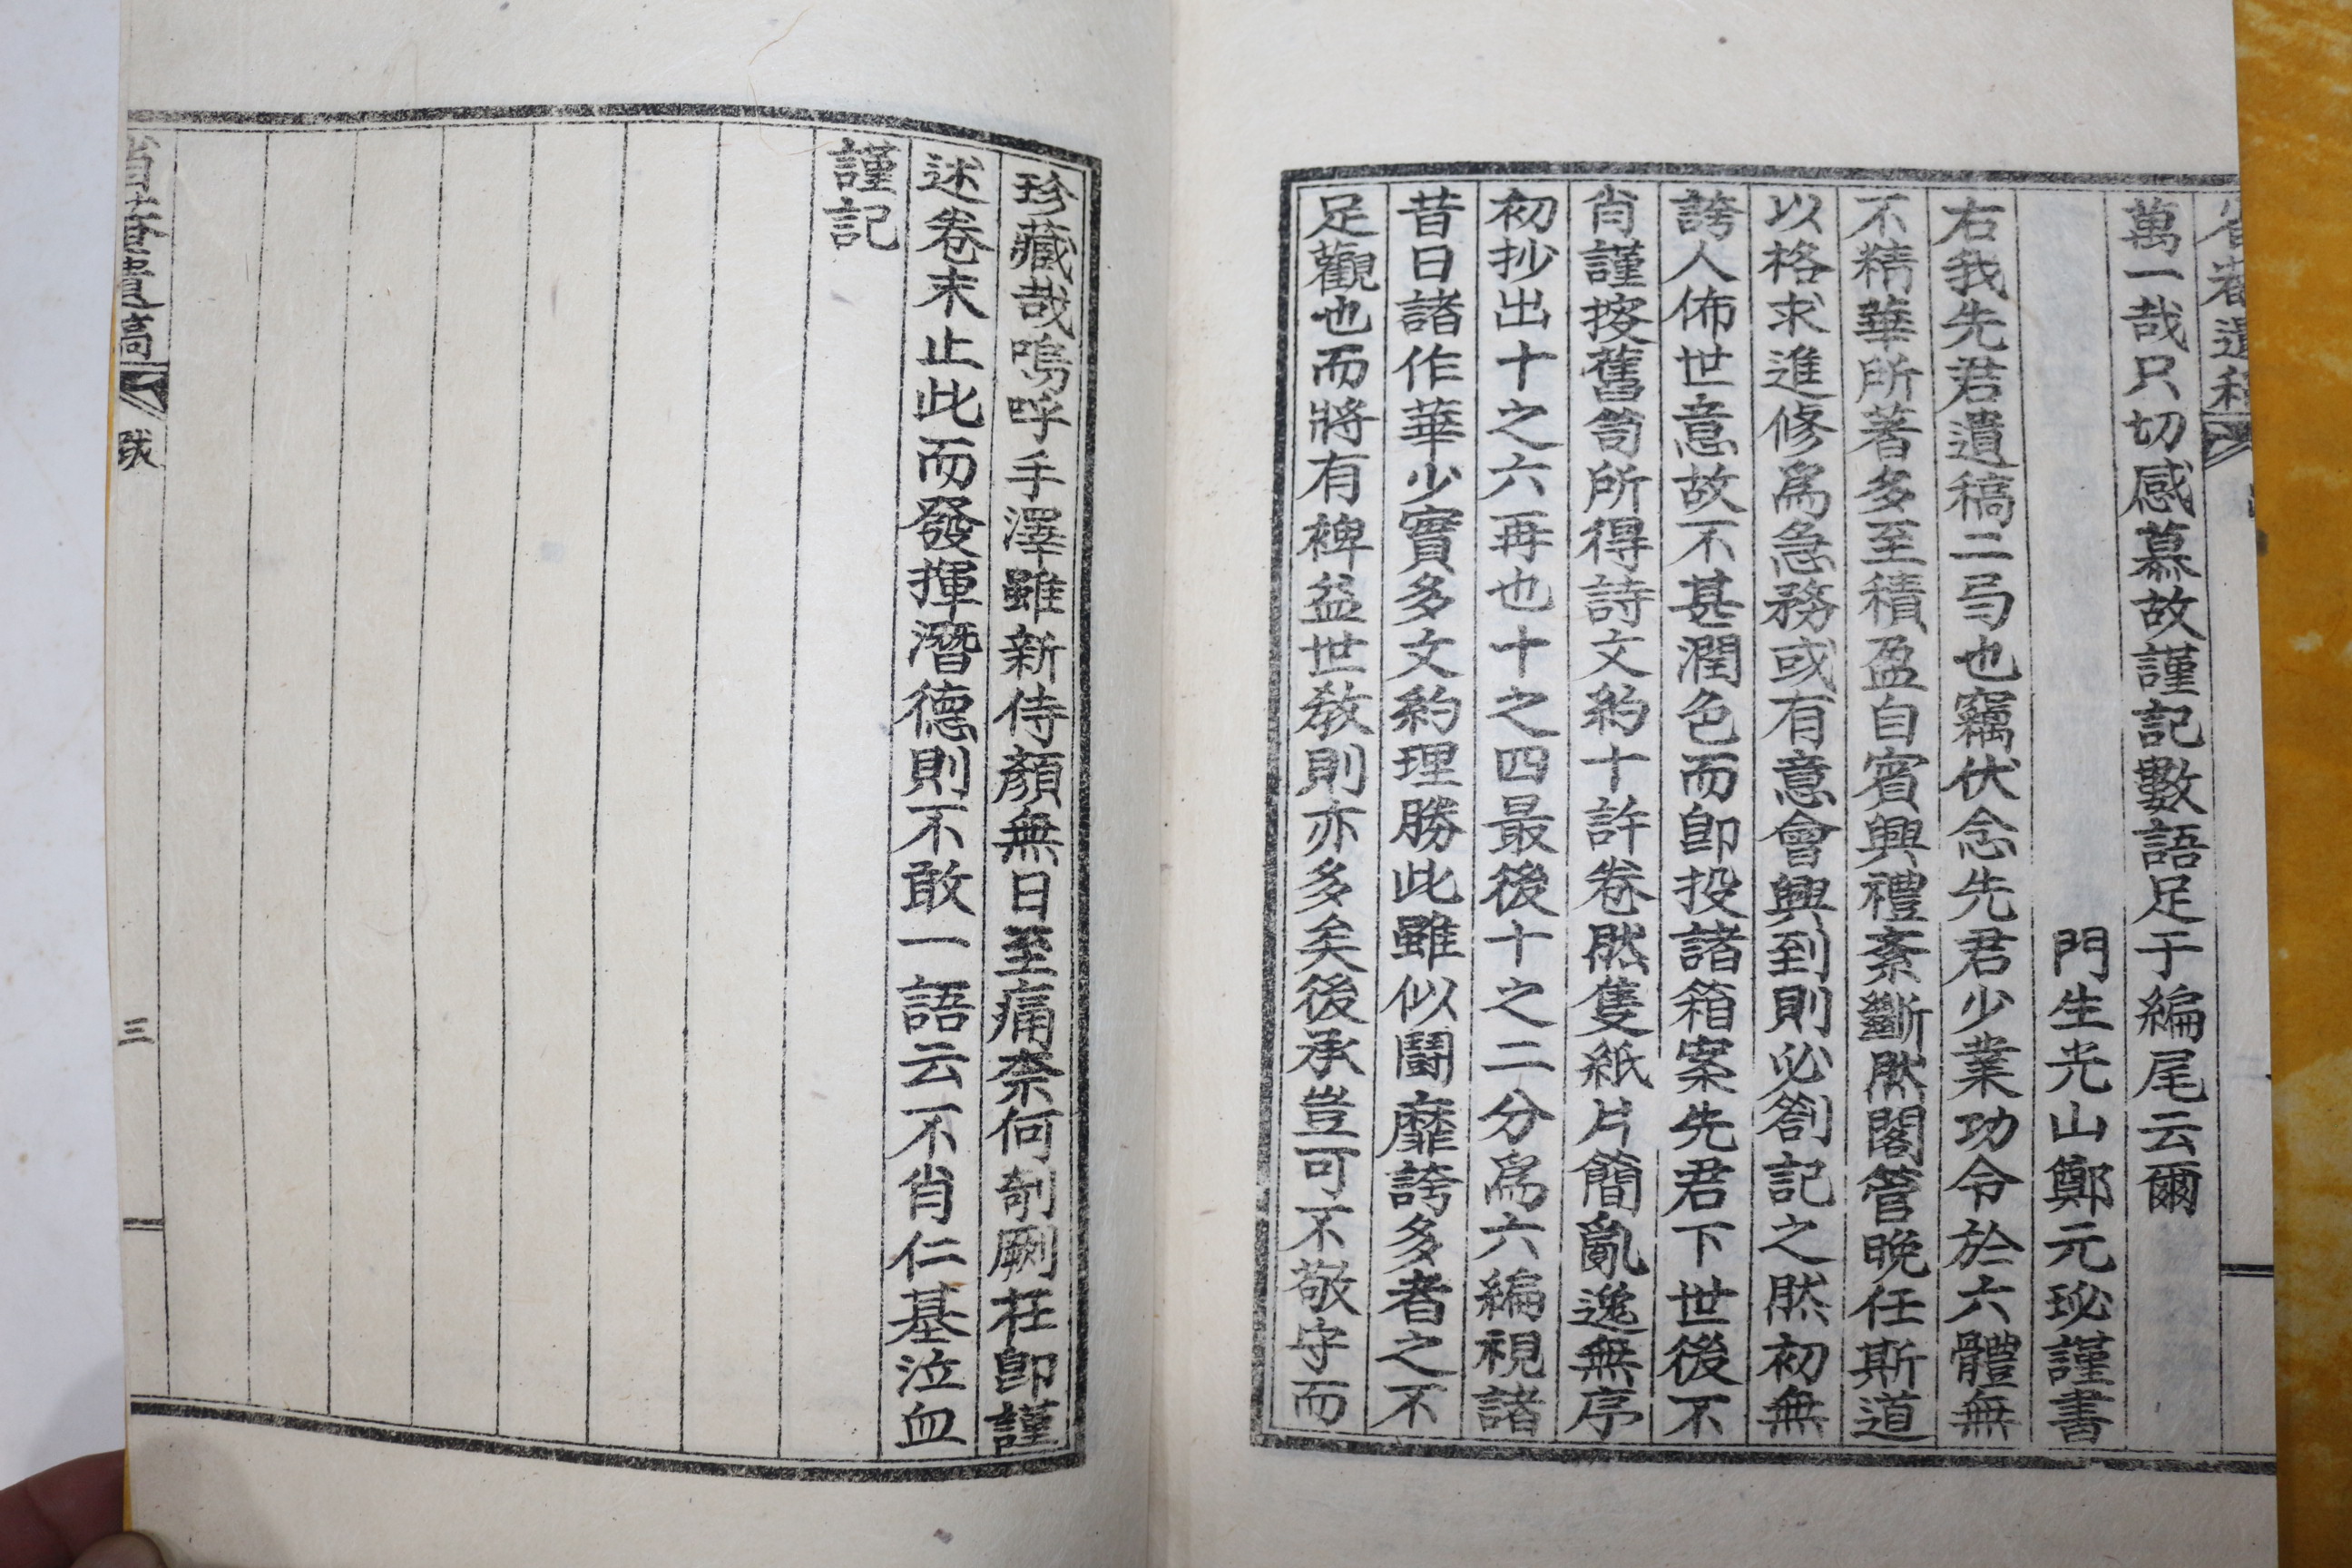 萬一哉只切感慕故謹記數語足于編尾云爾
門生光山鄭元珌謹書
右我先君遺稿二弓也竊伏念先君少業功令於六體無
不精華所著多至積盈自賓興禮紊斷然閣管晩任斯道
以格求進修爲急務或有意會興到則必劄記之然初無
誇人佈世意故不甚潤色而卽投諸箱案先君下世後不
肖謹按舊笥所得詩文約十許卷然隻紙片簡亂逸無序
初抄出十之六再也十之四最後十之二分爲六編視諸
昔日諸作華少實多文約理勝此雖似鬪靡誇多者之不
足觀也而將有裨益世敎則亦多矣後承豈可不敬守而
珍藏哉嗚呼手澤雖新侍顏無日至痛柰何剞劂在卽謹
述卷末止此而發揮潛德則不敢一語云不肖仁基泣血
謹記
遺稿
跋
三